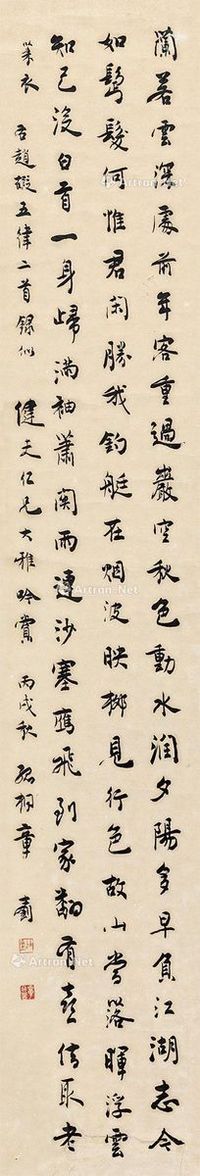 蘭若雲深處前年客重過巖空秋色動水濶夕陽多早負江湖志今
如鬢髮何惟君閑勝我釣艇在烟波映柳見行色故山當落暉浮雲
知己没白首一身歸滿袖蕭關雨連沙塞鴈飛到家翻有喜借取老
萊衣
右趙嘏五律二首錄似 健夫仁兄大雅吟賞 丙戌秋 孤桐章士釗
Artron.Net